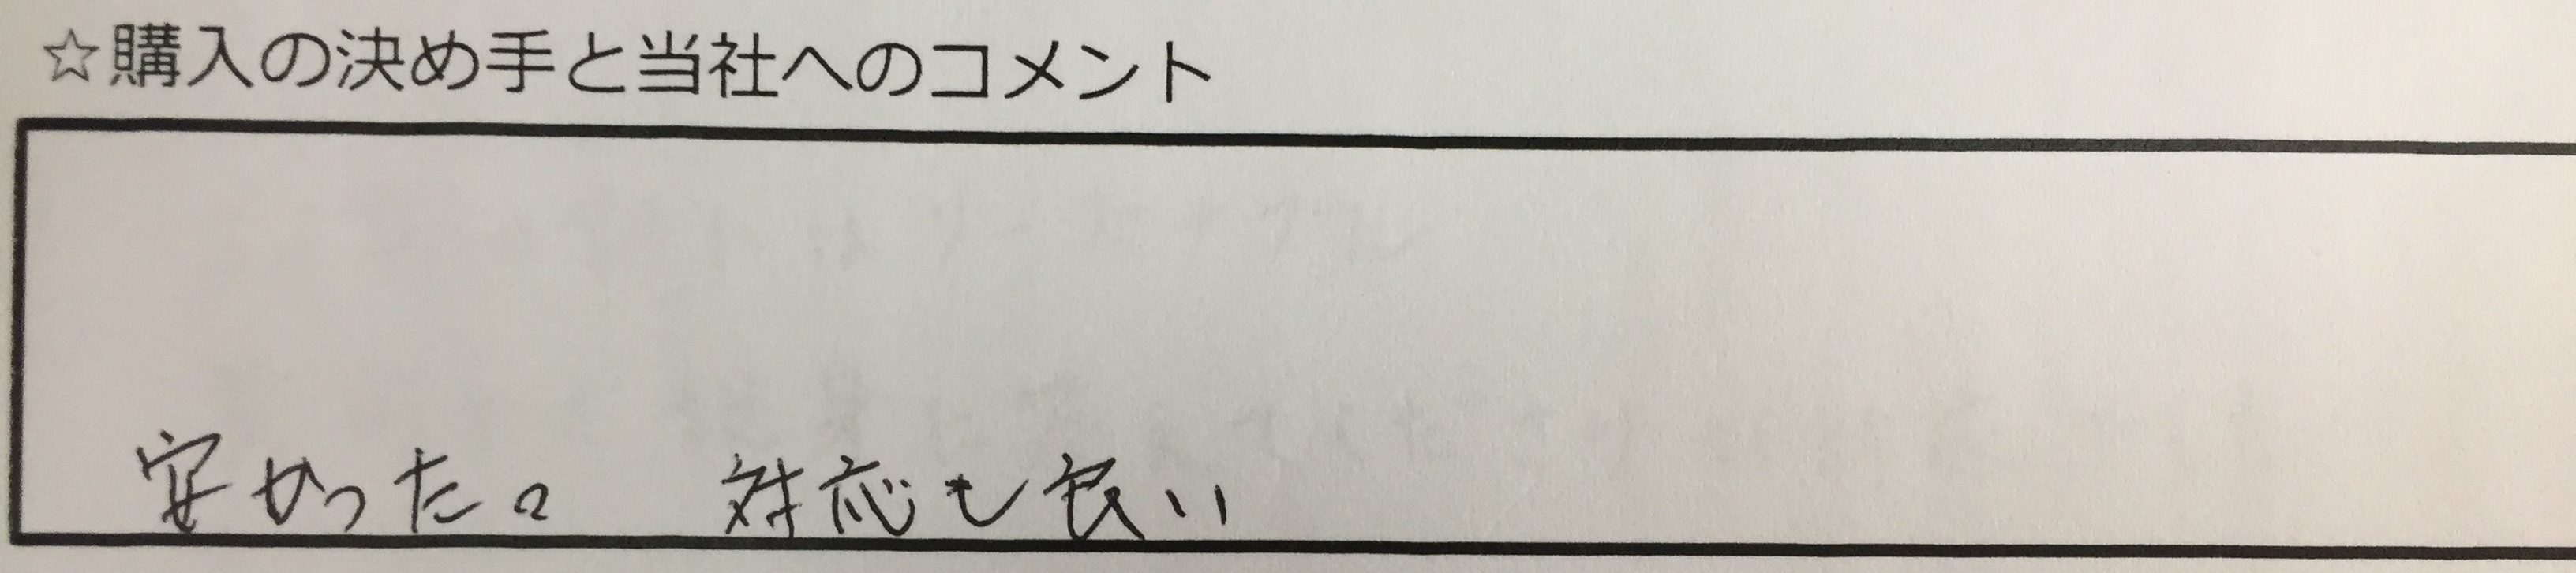 ☆購入の決め手と当社へのコメント
安かった。 対応も良い